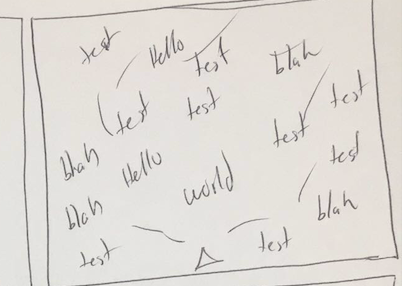 test Hello test blah
test test test test
blah Hello test
blah world blah
test test